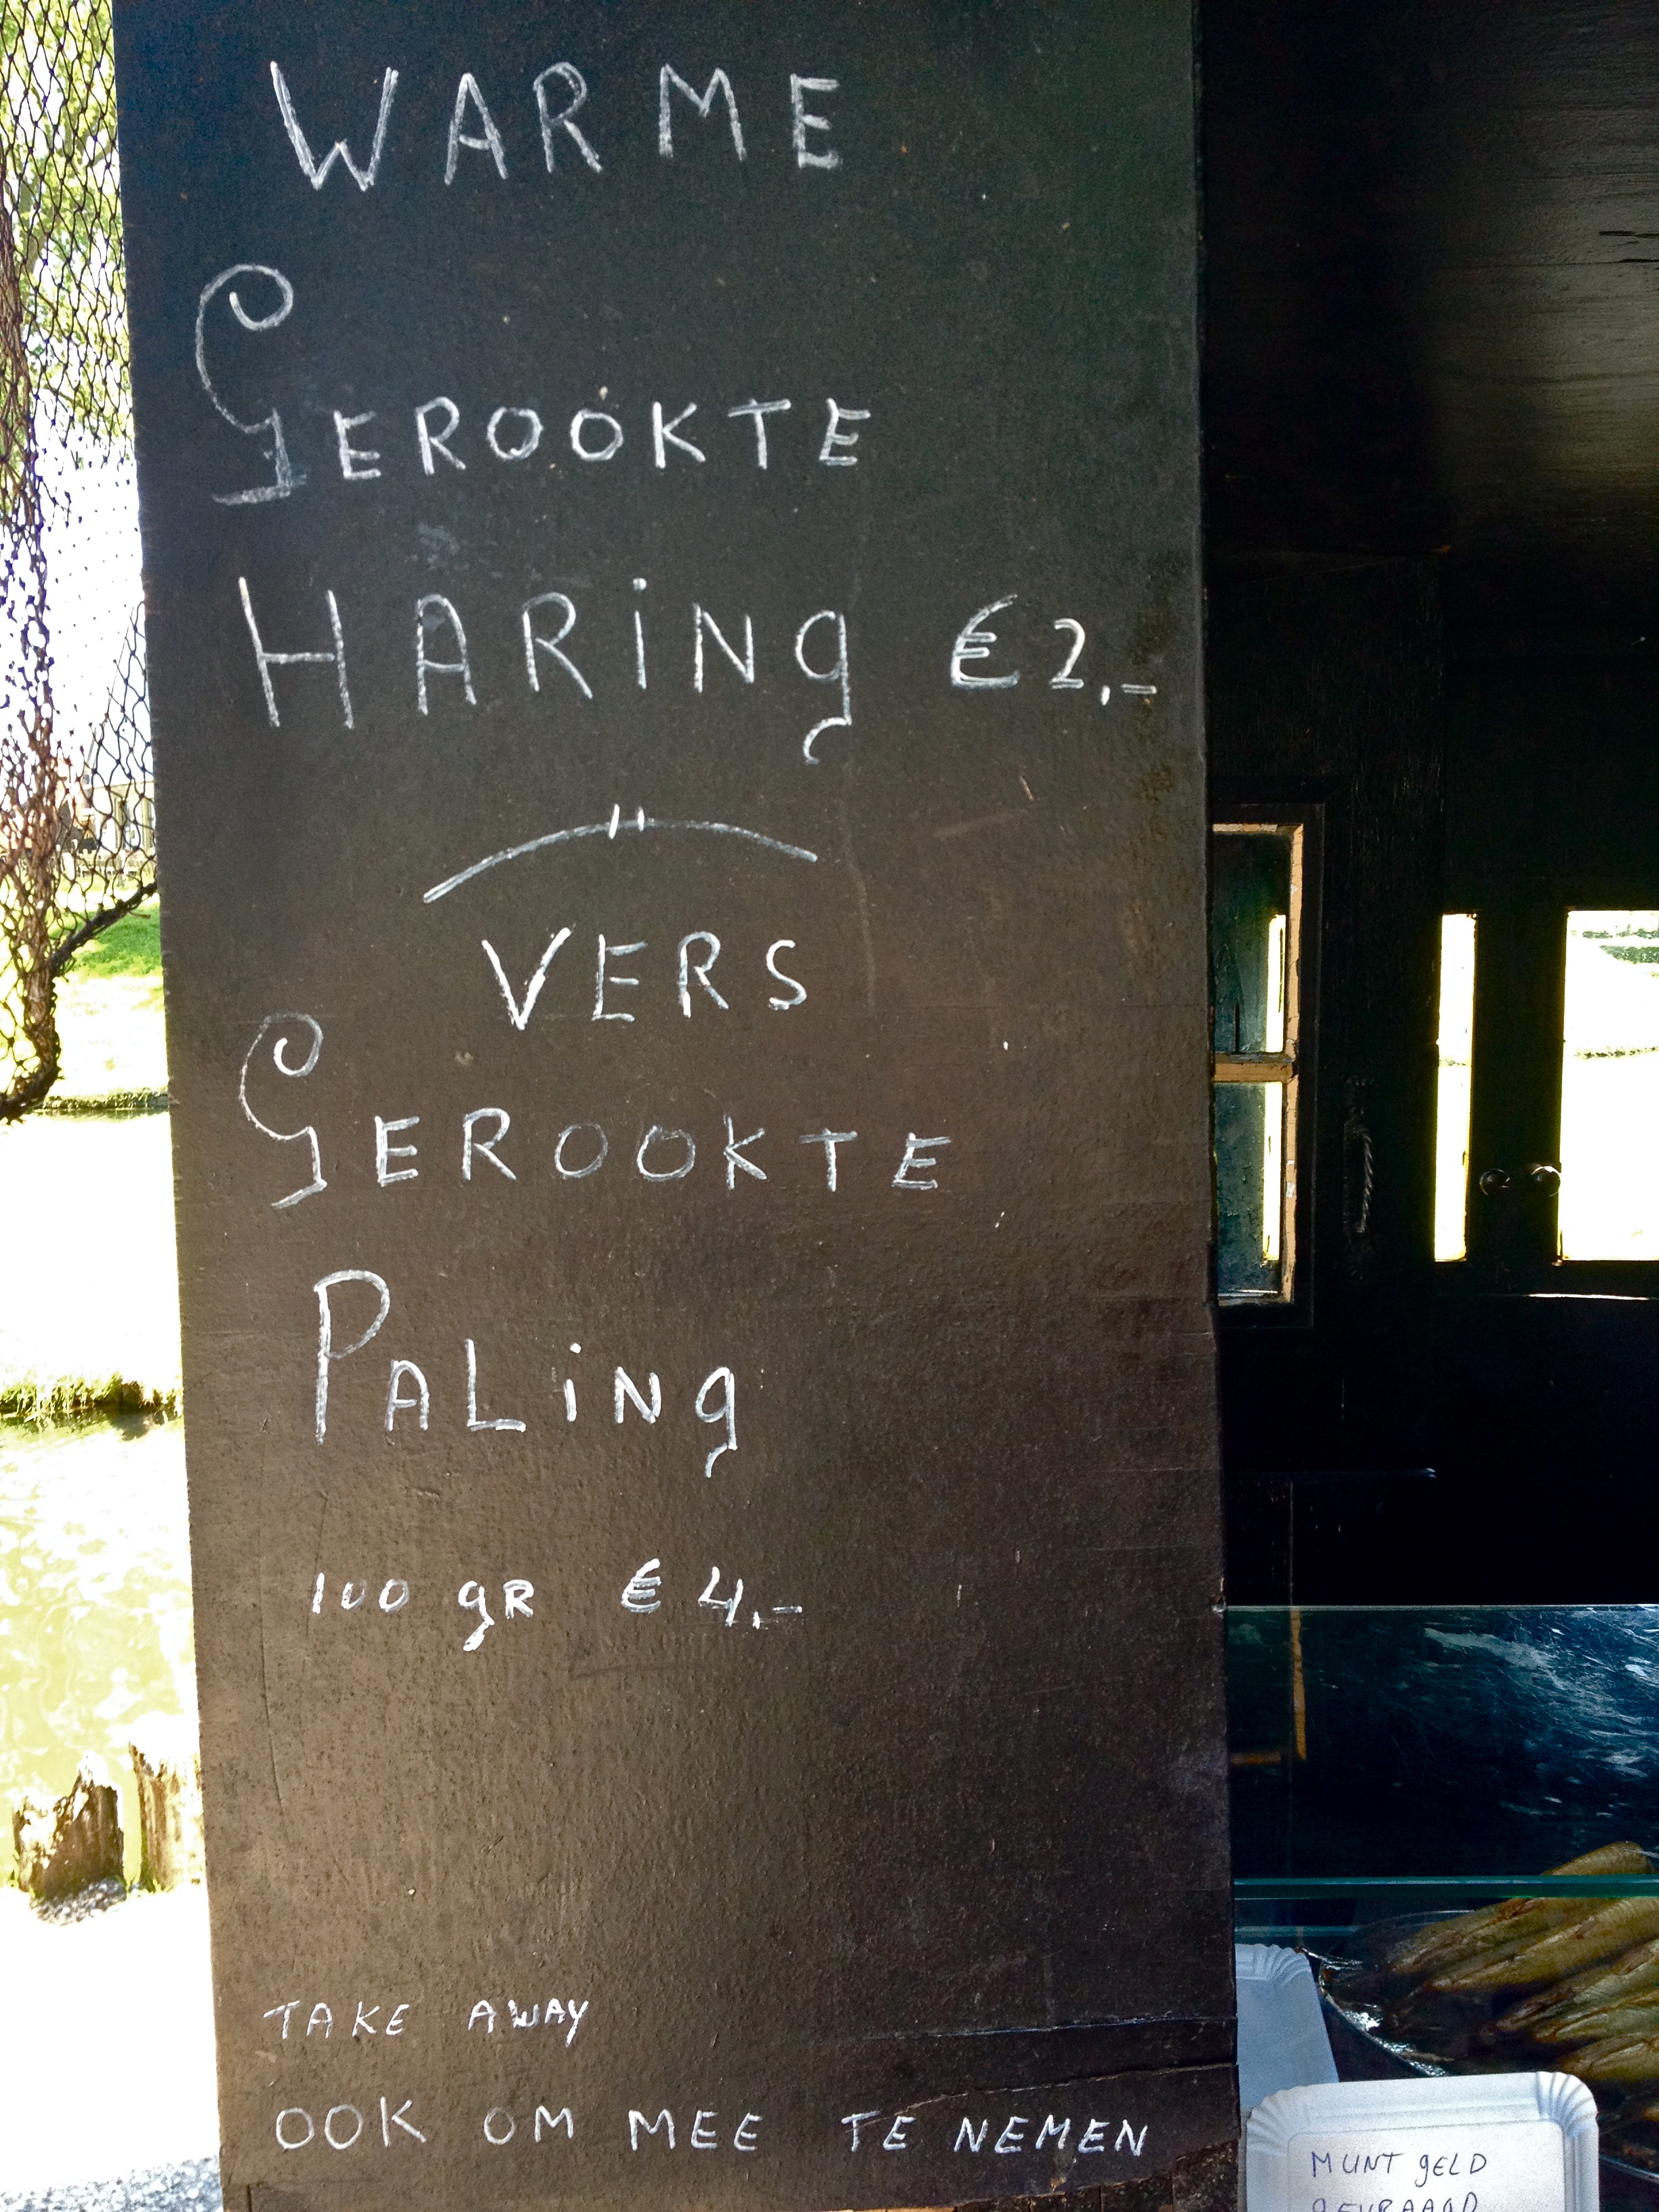 WARME
GEROOKTE
HARiNg €2,-
VERS
GEROOKTE
PALiNg
100 gR €4,-
TAKE AWAY
OOK OM MEE TE NEMEN
MUNT gELD